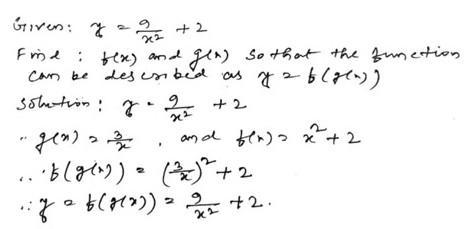 Given: y = 9/x² + 2
Find : f(x) and g(x) so that the function
can be described as y = f(g(x))
Solution : y = 9/x² + 2
∴ g(x) = 3/x , and f(x) = x² + 2
∴ f(g(x)) = (3/x)² + 2
∴ y = f(g(x)) = 9/x² + 2.